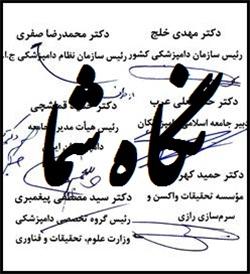 دکتر مهدی خلج
رئیس سازمان دامپزشکی کشور
دکتر محمدرضا صفری
رئیس سازمان نظام دامپزشکی ج.ا.
دکتر علی عرب
دبیر جامعه اسلامی
دکتر
رئیس هیأت مدیره جامعه
نگاه شما
دکتر حمید
مؤسسه تحقیقات واکسن و
سرم‌سازی رازی
دکتر سید مصطفی پیغمبری
رئیس گروه تخصصی دامپزشکی
وزارت علوم، تحقیقات و فناوری